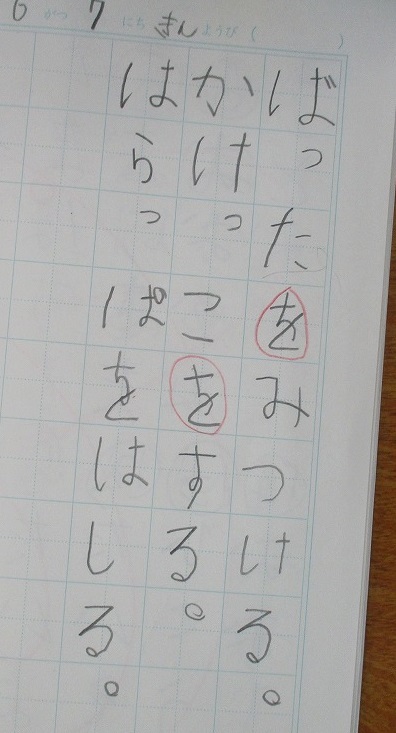 6がつ7にちきんようび( )
ばったをみつける。
かけっこをする。
はらっぱをはしる。